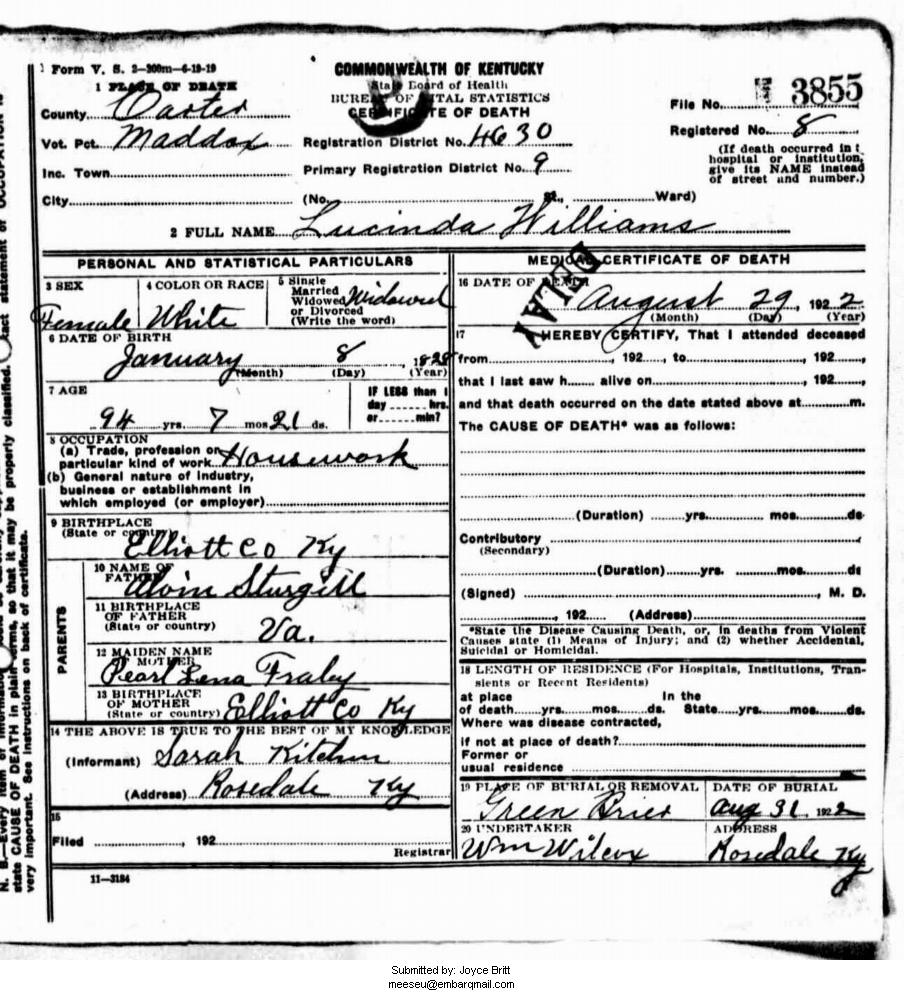 1 Form V. S. 2-300m-6-19-19
COMMONWEALTH OF KENTUCKY
State Board of Health
BUREAU OF VITAL STATISTICS
CERTIFICATE OF DEATH
1 PLACE OF DEATH
County Carter
Vot. Pct. Maddox
Inc. Town
City
Registration District No. 4630
Primary Registration District No. 9
(No. St., Ward)
File No. 3855
Registered No. 8
(If death occurred in
hospital or institution,
give its NAME instead
of street and number.)
2 FULL NAME Lucinda Williams
PERSONAL AND STATISTICAL PARTICULARS
3 SEX
Female
4 COLOR OR RACE
White
5 Single
Married
Widowed
or Divorced
(Write the word)
Widowed
6 DATE OF BIRTH
January 8 1828
(Month) (Day) (Year)
7 AGE
94 yrs. 7 mos 21 ds.
IF LESS than 1
day hrs.
or min?
8 OCCUPATION
(a) Trade, profession or
particular kind of work Housework
(b) General nature of industry,
business or establishment in
which employed (or employer)
9 BIRTHPLACE
(State or country)
Elliott Co Ky
PARENTS
10 NAME OF
FATHER
Alvin Sturgill
11 BIRTHPLACE
OF FATHER
(State or country)
Va.
12 MAIDEN NAME
OF MOTHER
Pearl Lena Fraley
13 BIRTHPLACE
OF MOTHER
(State or country) Elliott Co Ky
14 THE ABOVE IS TRUE TO THE BEST OF MY KNOWLEDGE
(Informant) Sarah Kitchen
(Address) Rosedale Ky
15
Filed , 192
Registrar
11-3184
MEDICAL CERTIFICATE OF DEATH
DELAY
16 DATE OF DEATH
August 29 1922
(Month) (Day) (Year)
17 I HEREBY CERTIFY, That I attended deceased
from , 192 , to , 192 ,
that I last saw h alive on , 192 ,
and that death occurred on the date stated above at m.
The CAUSE OF DEATH* was as follows:
(Duration) yrs. mos. ds
Contributory
(Secondary)
(Duration) yrs. mos. ds
(Signed) , M. D.
, 192 (Address)
*State the Disease Causing Death, or, in deaths from Violent
Causes state (1) Means of Injury; and (2) whether Accidental,
Suicidal or Homicidal.
18 LENGTH OF RESIDENCE (For Hospitals, Institutions, Tran-
sients or Recent Residents)
at place In the
of death yrs. mos. ds. State yrs. mos. ds.
Where was disease contracted,
if not at place of death?
Former or
usual residence
19 PLACE OF BURIAL OR REMOVAL
Green Brier
DATE OF BURIAL
Aug 31 1922
20 UNDERTAKER
Wm Wilcox
ADDRESS
Rosedale Ky
N. B.—Every item of information
state CAUSE OF DEATH in plain terms, so that it may be properly classified. Exact statement of OCCUPATION is
very important. See instructions on back of certificate.
Submitted by: Joyce Britt
meeseu@embarqmail.com